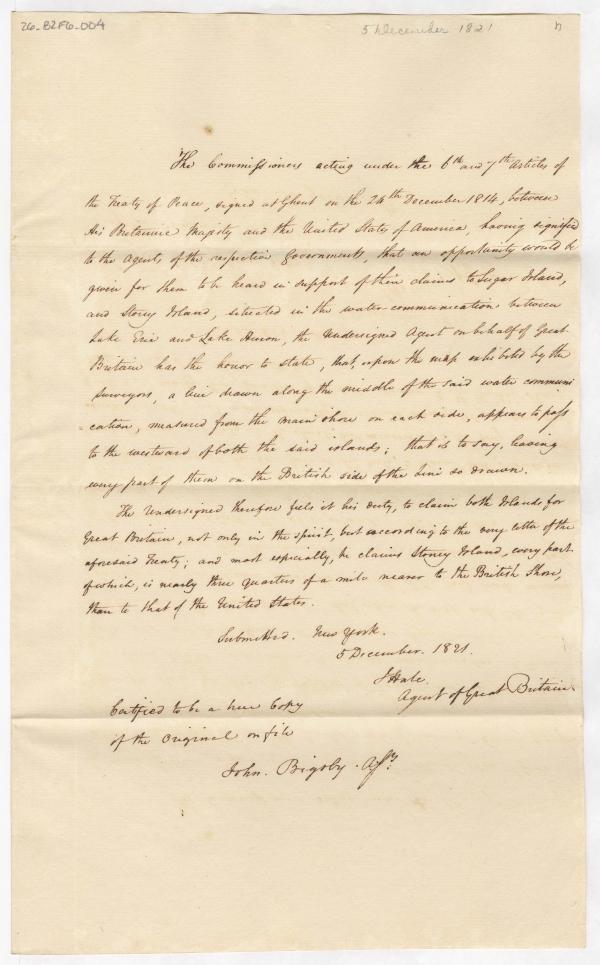 26-B2F6-004
5 December 1821
The Commissioners acting under the 6th and 7th Articles of
the Treaty of Peace, signed at Ghent on the 24th December 1814, between
His Britannic Majesty and the United States of America, having signified
to the Agents, of the respective Governments, that an opportunity would be
given for them to be heard in support of their claims to Sugar Island,
and Stoney Island, situated in the water-communication between
Lake Erie and Lake Huron, the Undersigned Agent on behalf of Great
Britain has the honor to state, that, upon the map exhibited by the
Surveyors, a line drawn along the middle of the said water communi
cation, measured from the main shore on each side, appears to pass
to the westward of both the said islands; that is to say, leaving
every part of them on the British side of the line so drawn.
The Undersigned therefore feels it his duty, to claim both Islands for
Great Britain, not only in the spirit, but according to the very letter of the
aforesaid Treaty; and most especially, he claims Stoney Island, every part
of which, is nearly three quarters of a mile nearer to the British Shore,
than to that of the United States.
Submitted. New York.
5 December. 1821.
J Hale.
Agent of Great Britain.
Certified to be a true Copy
of the Original on file
John. Bigsby. Assy.